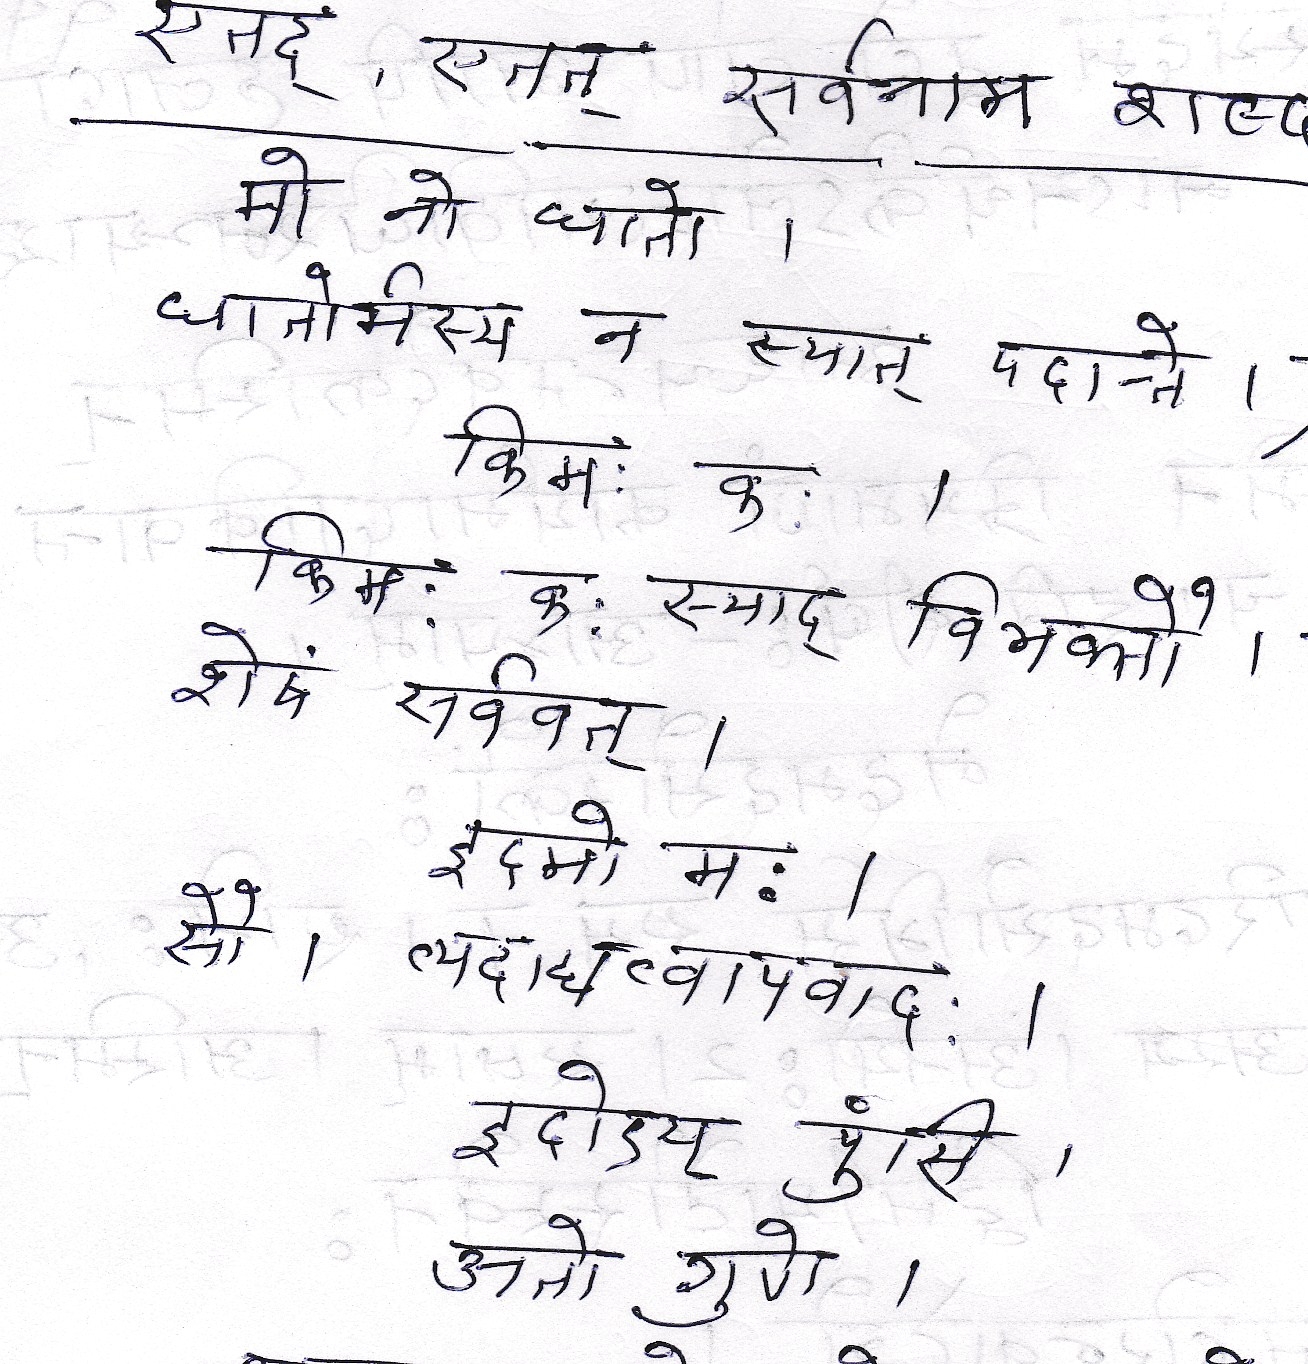 एतद्, एतत् सर्वनाम शब्द
मो नो धातो ।
धातोर्मस्य न स्यात् पदान्ते ।
किमः कः ।
किमः कः स्याद् विभक्तौ ।
शेषं सर्ववत् ।
इदमो मः ।
सौ । त्यदाद्यत्वापवादः ।
इदोऽय् पुंसि ।
अतो गुणे ।